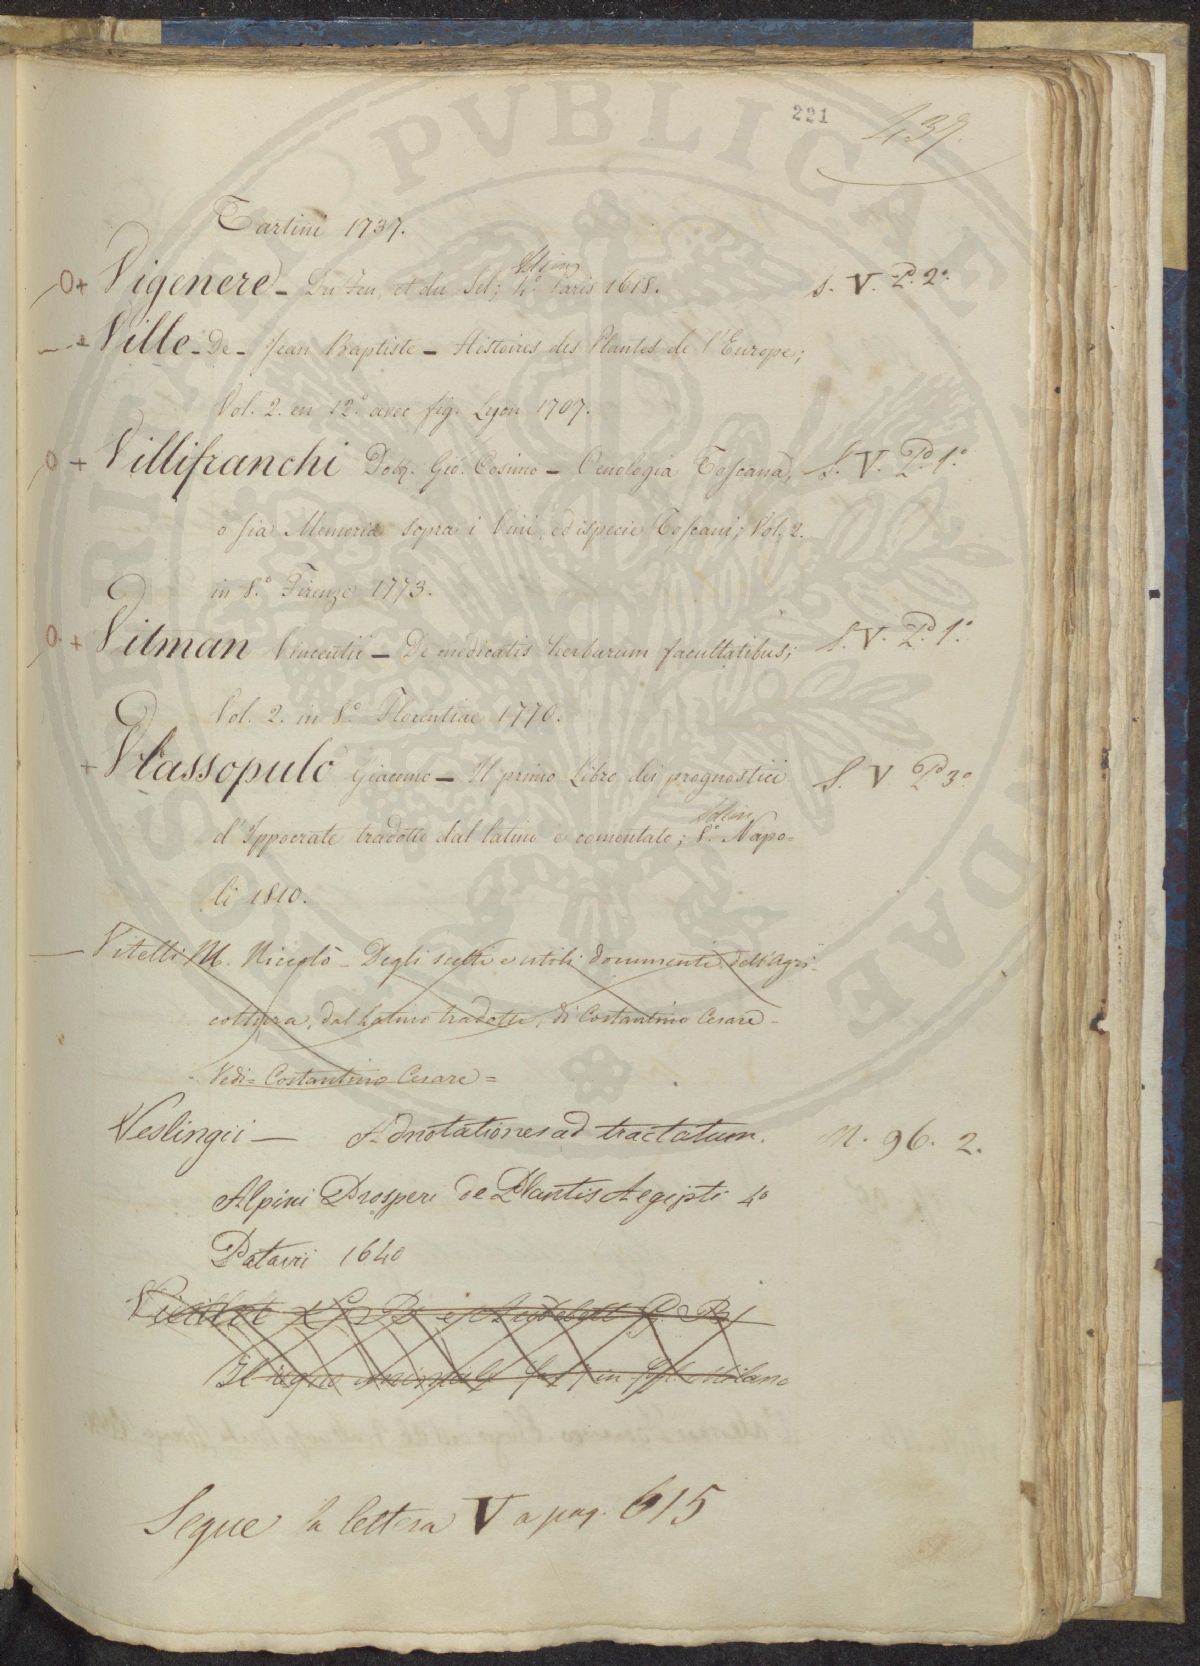 221
437.
Tartini 1737.
O+ Vigenere - Du Feu, et du Sel; 4.º Paris 1618. S. V. P.º 2.º
Ville - De - Jean Baptiste - Histoires des Plantes de l'Europe;
Vol. 2. en 12.º avec fig. Lyon 1707.
O + Villifranchi Dott. Gio. Cosimo - Oenologia Toscana, S. V. P.º 1.º
o sia Memoria sopra i Vini, ed ispecie Toscani; Vol. 2.
in 8.º Firenze 1773.
O. + Vitman Vincentii - De medicatis herbarum facultatibus; S. V. P.º 1.º
Vol. 2. in 8.º Florentiae 1770.
+ Vlassopulo Giacomo - Il primo Libro dei prognostici S. V P.º 3.º
d'Ippocrate tradotto dal latino e comentato; 8.º Napo=
li 1810.
Vitelli M. Niccolò - Degli scelti e utili documenti dell'Agri-
coltura, dal Latino tradotti, di Costantino Cesare -
Vedi = Costantino Cesare =
Veslingii - Adnotationes ad tractatum. M. 96. 2.
Alpini Prosperi de Plantis Aegipti 4º
Patavii 1640
Il regno Animale in Milano
Segue la lettera V a pag. 615
PVBLICAE